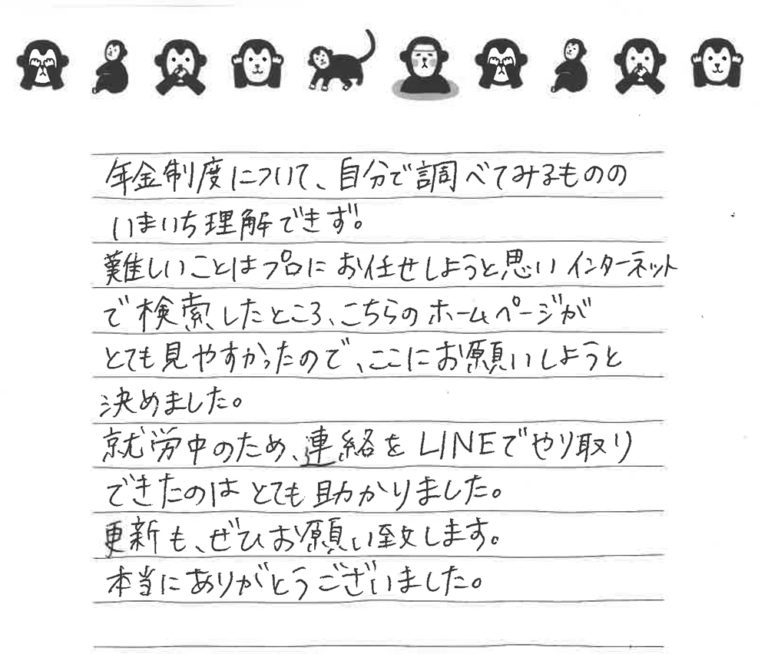 年金制度について、自分で調べてみるものの
いまいち理解できず。
難しいことはプロにお任せしようと思いインターネット
で検索したところ、こちらのホームページが
とても見やすかったので、ここにお願いしようと
決めました。
就労中のため、連絡をLINEでやり取り
できたのはとても助かりました。
更新も、ぜひお願い致します。
本当にありがとうございました。